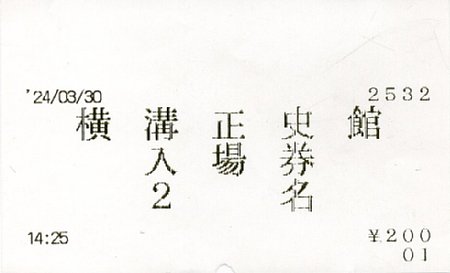 '24/03/30 2532
横溝正史館
入場券
2名
14:25 ￥200
01